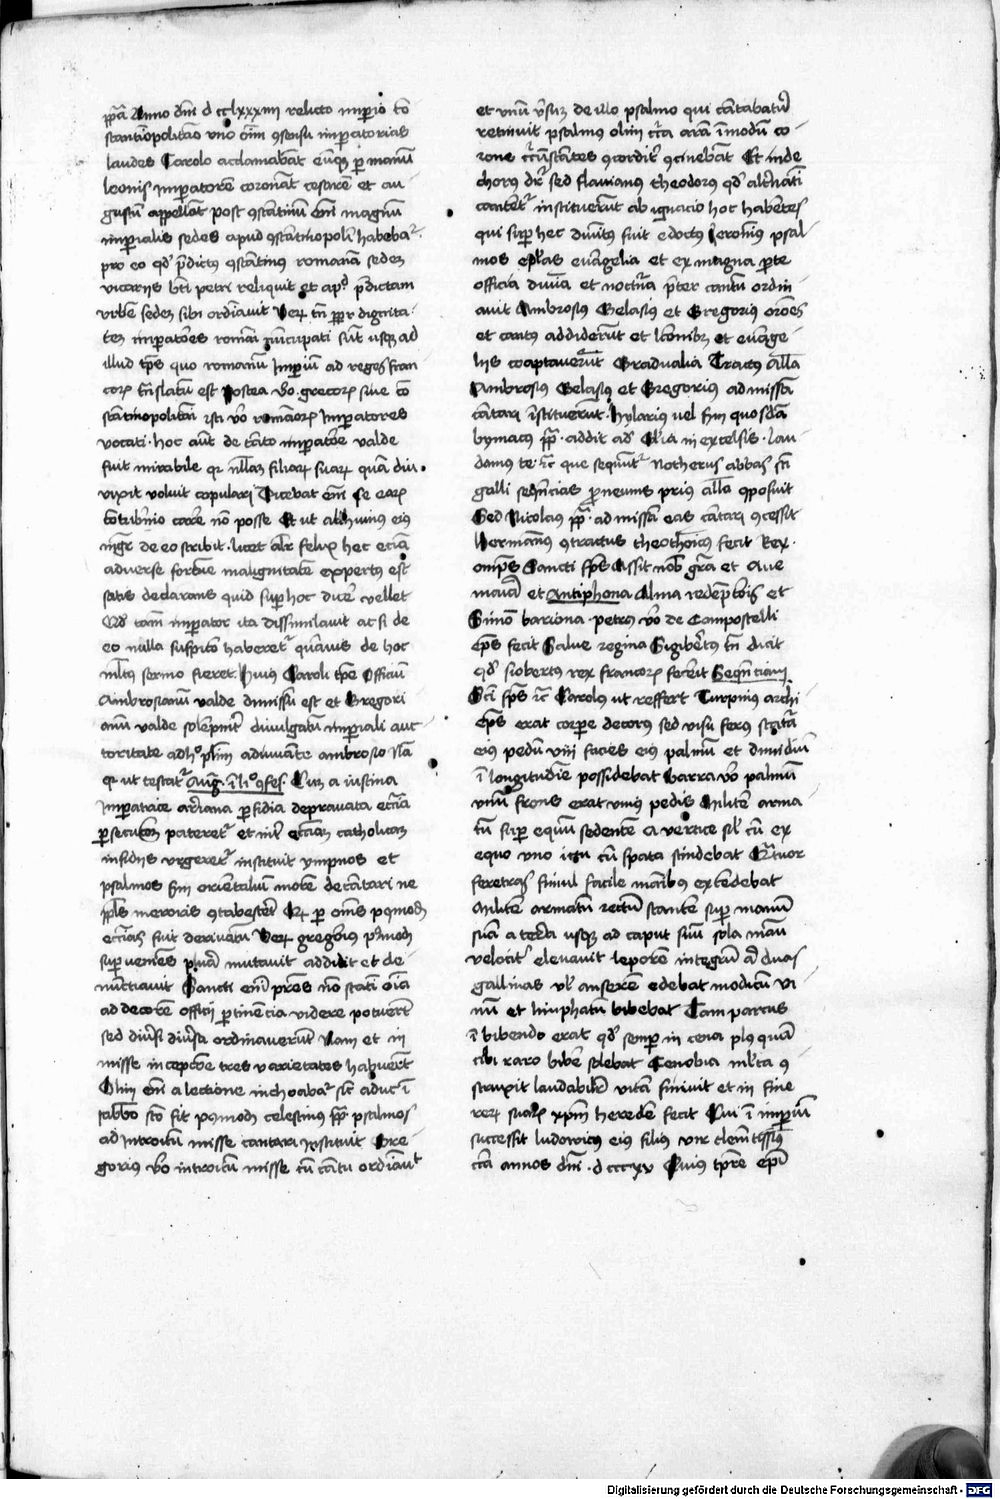 ppa Anno dni d cclxxxiiii relicto imperio co
stantinopolitano uno omi consensu imperatorias
laudes Carolo acclamabat eumque per manum
leonis imperatore coronat cesarem et au
gustum appellat post constantinum eni magnum
imperialis sedes apud constantinopoli habebat
pro eo qd predictus constantinus romana sedem
vicariis bti petri reliquit et predictam
urbem sedem sibi ordinavit Verum tn propter dignita
tem imperatores romani nuncupati sunt usque ad
illud tps quo romanum Imperium ad reges fran
corum translatum est Postea vo grecorum sive co
stantinopolitani isti vo romanorum Imperatores
vocati hoc aut de tanto imperatore valde
fuit mirabile quod nullam filiarum suarum quam diu
vixit voluit copulari Dicebat eni se earum
contubernio carere no posse Et ut alchuinus eius
mgr de eo scribit licet alr felix hec etia
adverse fortune malignitatem expertus est
satis declarans quid super hoc dicere vellet
Qd tamen imperator ita dissimilavit ac si de
eo nulla suspitio haberetur quamvis de hoc
multus sermo fieret Huius Caroli tpe Officium
Ambrosianum valde dimissum est et Gregori
anum valde solempniter divulgatum imperiali auc
toritate ad hoc plurimum adiuvante ambrosio Nam
quod ut testatur Aug in li 9 cofes Cum a iustina
imperatrice arriana perfidia depravata ecclia
persecutionem pateretur et inter eccliam catholicam
insidiis urgeretur instituit ympnos et
psalmos scdm orientalium morem decantari ne
ppls meroris contabesceret per omnes postmodum
ecclias fuit derivatum Verum gregorius postmodum
superveniens plura mutavit addidit et de
nunctiavit Sancti eni patres no statim omnia
ad decorem officii pertinencia videre potuerunt
sed diversi diversa ordinaverunt Nam et in
misse inceptione tres varietates habuerunt
Olim eni a lectione inchoabatur sicut adhuc in
sabbo sto fit postmodum celestinus pp psalmos
ad introitum misse cantari instituit Gre
gorius vo introitum misse cum cantu ordinavit
et unum versum de illo psalmo qui cantabatur
retinuit psalmus olim circa aram in modum co
rone circumstantes concorditer concinebant Et inde
chorus dr sed flavianus theodorus qd alternatim
cantent instituerunt ab ignacio hoc habentes
qui super hec divinitus fuit edoctus Jeronimus psal
mos eplas evangelia et ex magna parte
officia diurna et nocturna preter cantum ordin
avit Ambrosius Gelasius et Gregorius orones
et cantus addiderunt et lectionibus et evange
liis coaptaverunt Gradualia Tractus alla
Ambrosius Gelasius et Gregorius ad missam
cantari instituerunt Hylarius vel scdm quosdam
Symacus pp addit ad Gloria in excelsis Lau
damus te etc que sequuntur Notherus abbas sci
galli sequencias pro neumis prius alla composuit
Sed Nicolaus pp ad missam eas cantari concessit
Hermannus contractus theothonicus fecit Rex
omps Sancti sps Assit nobis gra et Ave
maria et Antiphona Alma redemptoris et
Simon bariona petrus vo de Campostelli
eps fecit Salve regina Sigibertus tn dicit
qd siobertus rex francorum fecerit Sequenciam
Sci sps etc Carolus ut reffert Turpinus archi
eps erat corpore decorus sed visu ferus statura
eius pedum viii facies eius palmum et dimidium
in longitudine possidebat Barra vo palmum
unum frons erat unius pedis Militem arma
tum super equum sedentem a vertice simul cum ex
equo uno ictu cum spata scindebat Quatuor
feretra simul facile manibus extendebat
Militem armatum rectum stantem super manum
suam a terra usque ad caput suum sola manu
velociter elevavit leporem integrum aut duas
gallinas vel anserem edebat modicum vi
num et limphatum bibebat Tam parcus
in bibendo erat qd semper in cena plus quam
ter raro bibere solebat Cenobia multa con
struxit laudabiliter vitam finivit et in fine
rerum suarum xpm heredem fecit Cui in imperium
successit ludowicus eius filius vir clementissimus
circa annos dni d cccxv Huius tpre epi